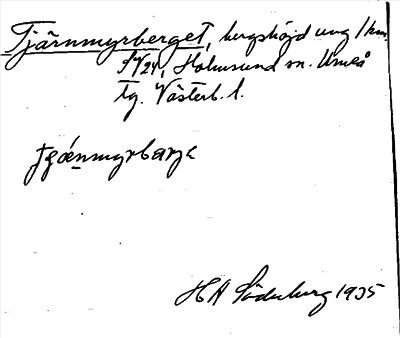 Tjärnmyrberget, bergshöjd ung 1 km.
SV 24, Holmsund sn. Umeå
Tg. Västerb. l.
HA Söderberg 1935